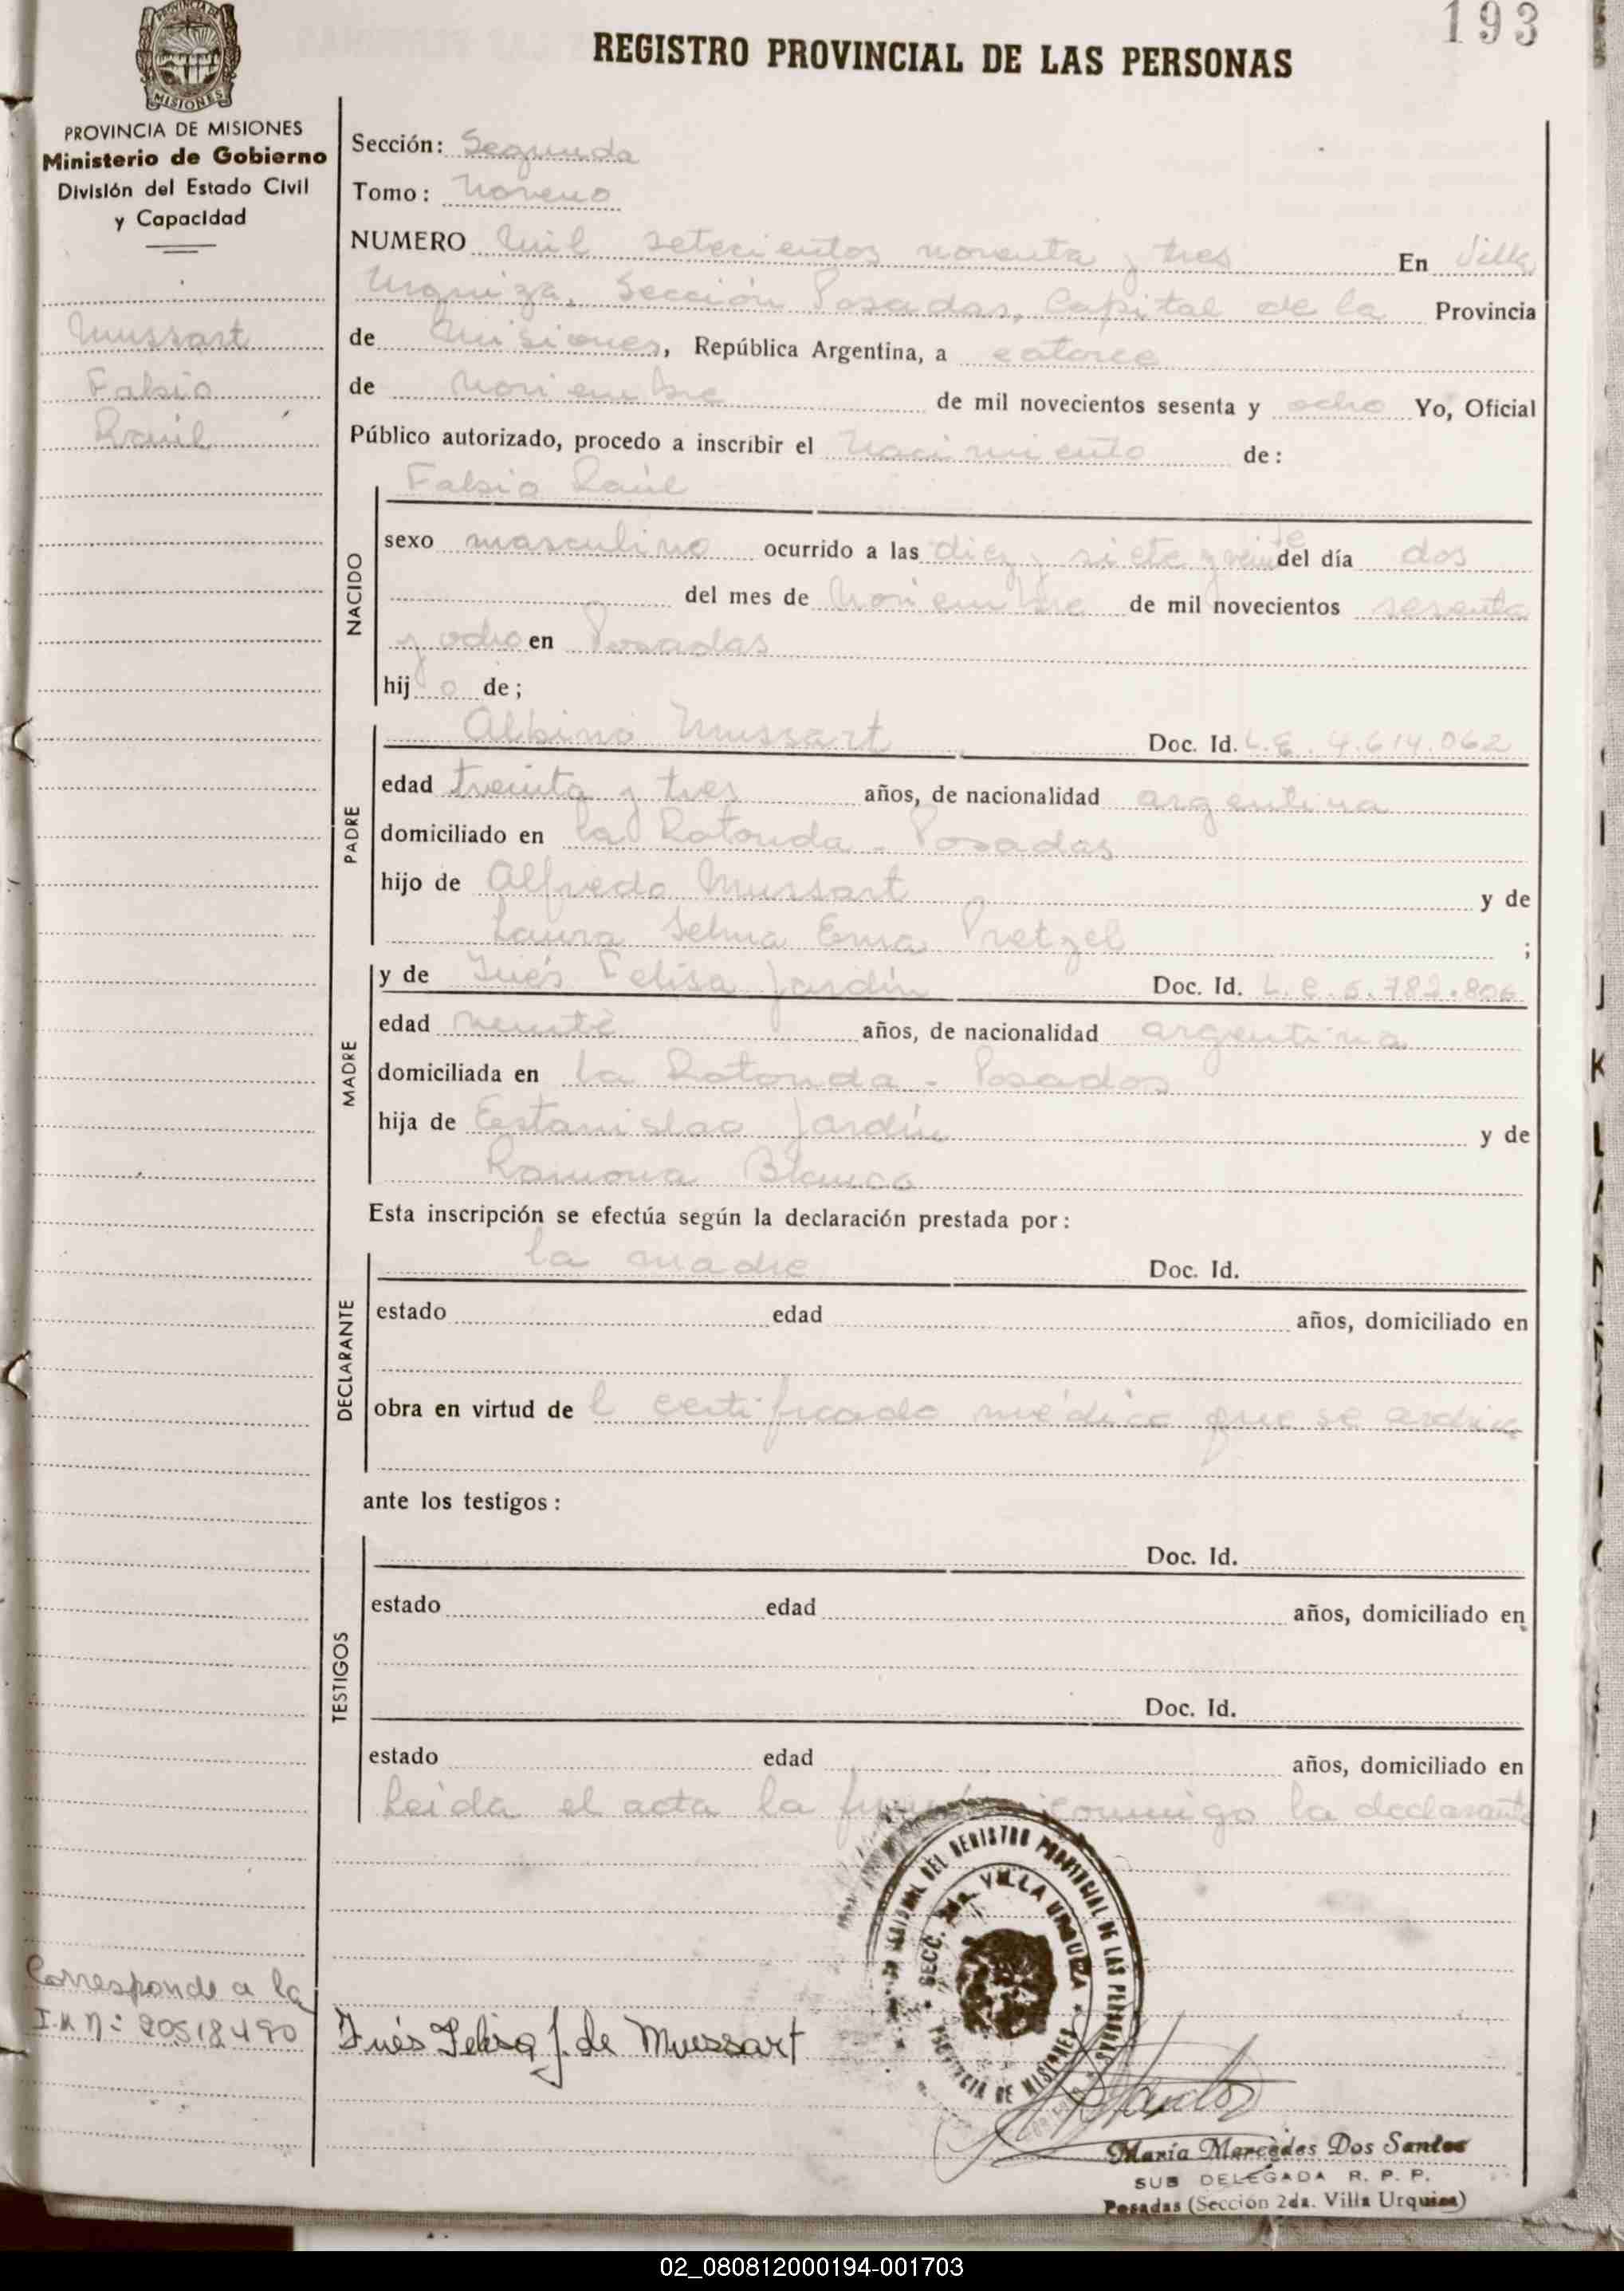 193
REGISTRO PROVINCIAL DE LAS PERSONAS
MISIONES
PROVINCIA DE MISIONES
Ministerio de Gobierno
División del Estado Civil
y Capacidad
Mussart
Fabio
Raúl
Sección: Segunda
Tomo: Noveno
NUMERO Mil setecientos noventa y tres En Villa
Urquiza, Sección Posadas, Capital de la Provincia
de Misiones, República Argentina, a catorce
de Noviembre de mil novecientos sesenta y ocho Yo, Oficial
Público autorizado, procedo a inscribir el Nacimiento de:
NACIDO
Fabio Raúl
sexo masculino ocurrido a las diez y siete y veinte del día dos
del mes de Noviembre de mil novecientos sesenta
y ocho en Posadas
hij o de;
PADRE
Albino Mussart Doc. Id. L.E. 4.614.062
edad treinta y tres años, de nacionalidad argentina
domiciliado en la Rotonda - Posadas
hijo de Alfredo Mussart y de
Laura Selma Erna Pretzel ;
MADRE
y de Inés Felisa Jardín Doc. Id. L.C. 5.782.806
edad veinte años, de nacionalidad argentina
domiciliada en la Rotonda - Posadas
hija de Estanislao Jardín y de
Ramona Blanco
Esta inscripción se efectúa según la declaración prestada por:
DECLARANTE
la madre Doc. Id.
estado edad años, domiciliado en
obra en virtud de l certificado médico que se archiva
ante los testigos:
TESTIGOS
Doc. Id.
estado edad años, domiciliado en
Doc. Id.
estado edad años, domiciliado en
Leida el acta la conmigo la declarante
DEL REGISTRO PROVINCIAL DE LAS PERSONAS
SECC. VILLA URQUIZA
DE MISIONES
Corresponde a la
I.M N: 20518490
Inés Felisa J. de Mussart
María Mercedes Dos Santos
SUB DELEGADA R. P. P.
Posadas (Sección 2da. Villa Urquiza)
02_080812000194-001703